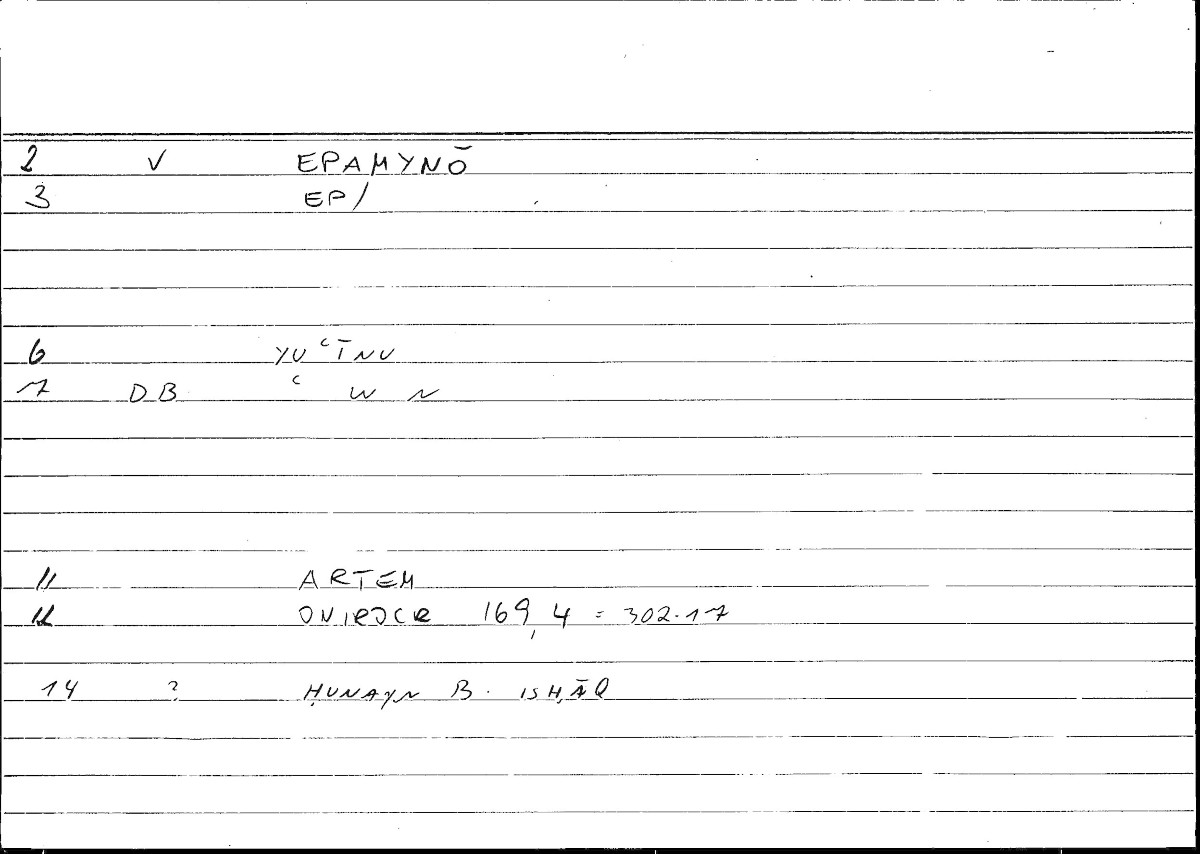 2 V EPAMYNŌ
3 EP/
6 YUʿĪNU
7 DB ʿ W N
11 ARTEM
12 ONIROCR 169,4 = 302.17
14 ? ḤUNAYN B. ISḤĀQ